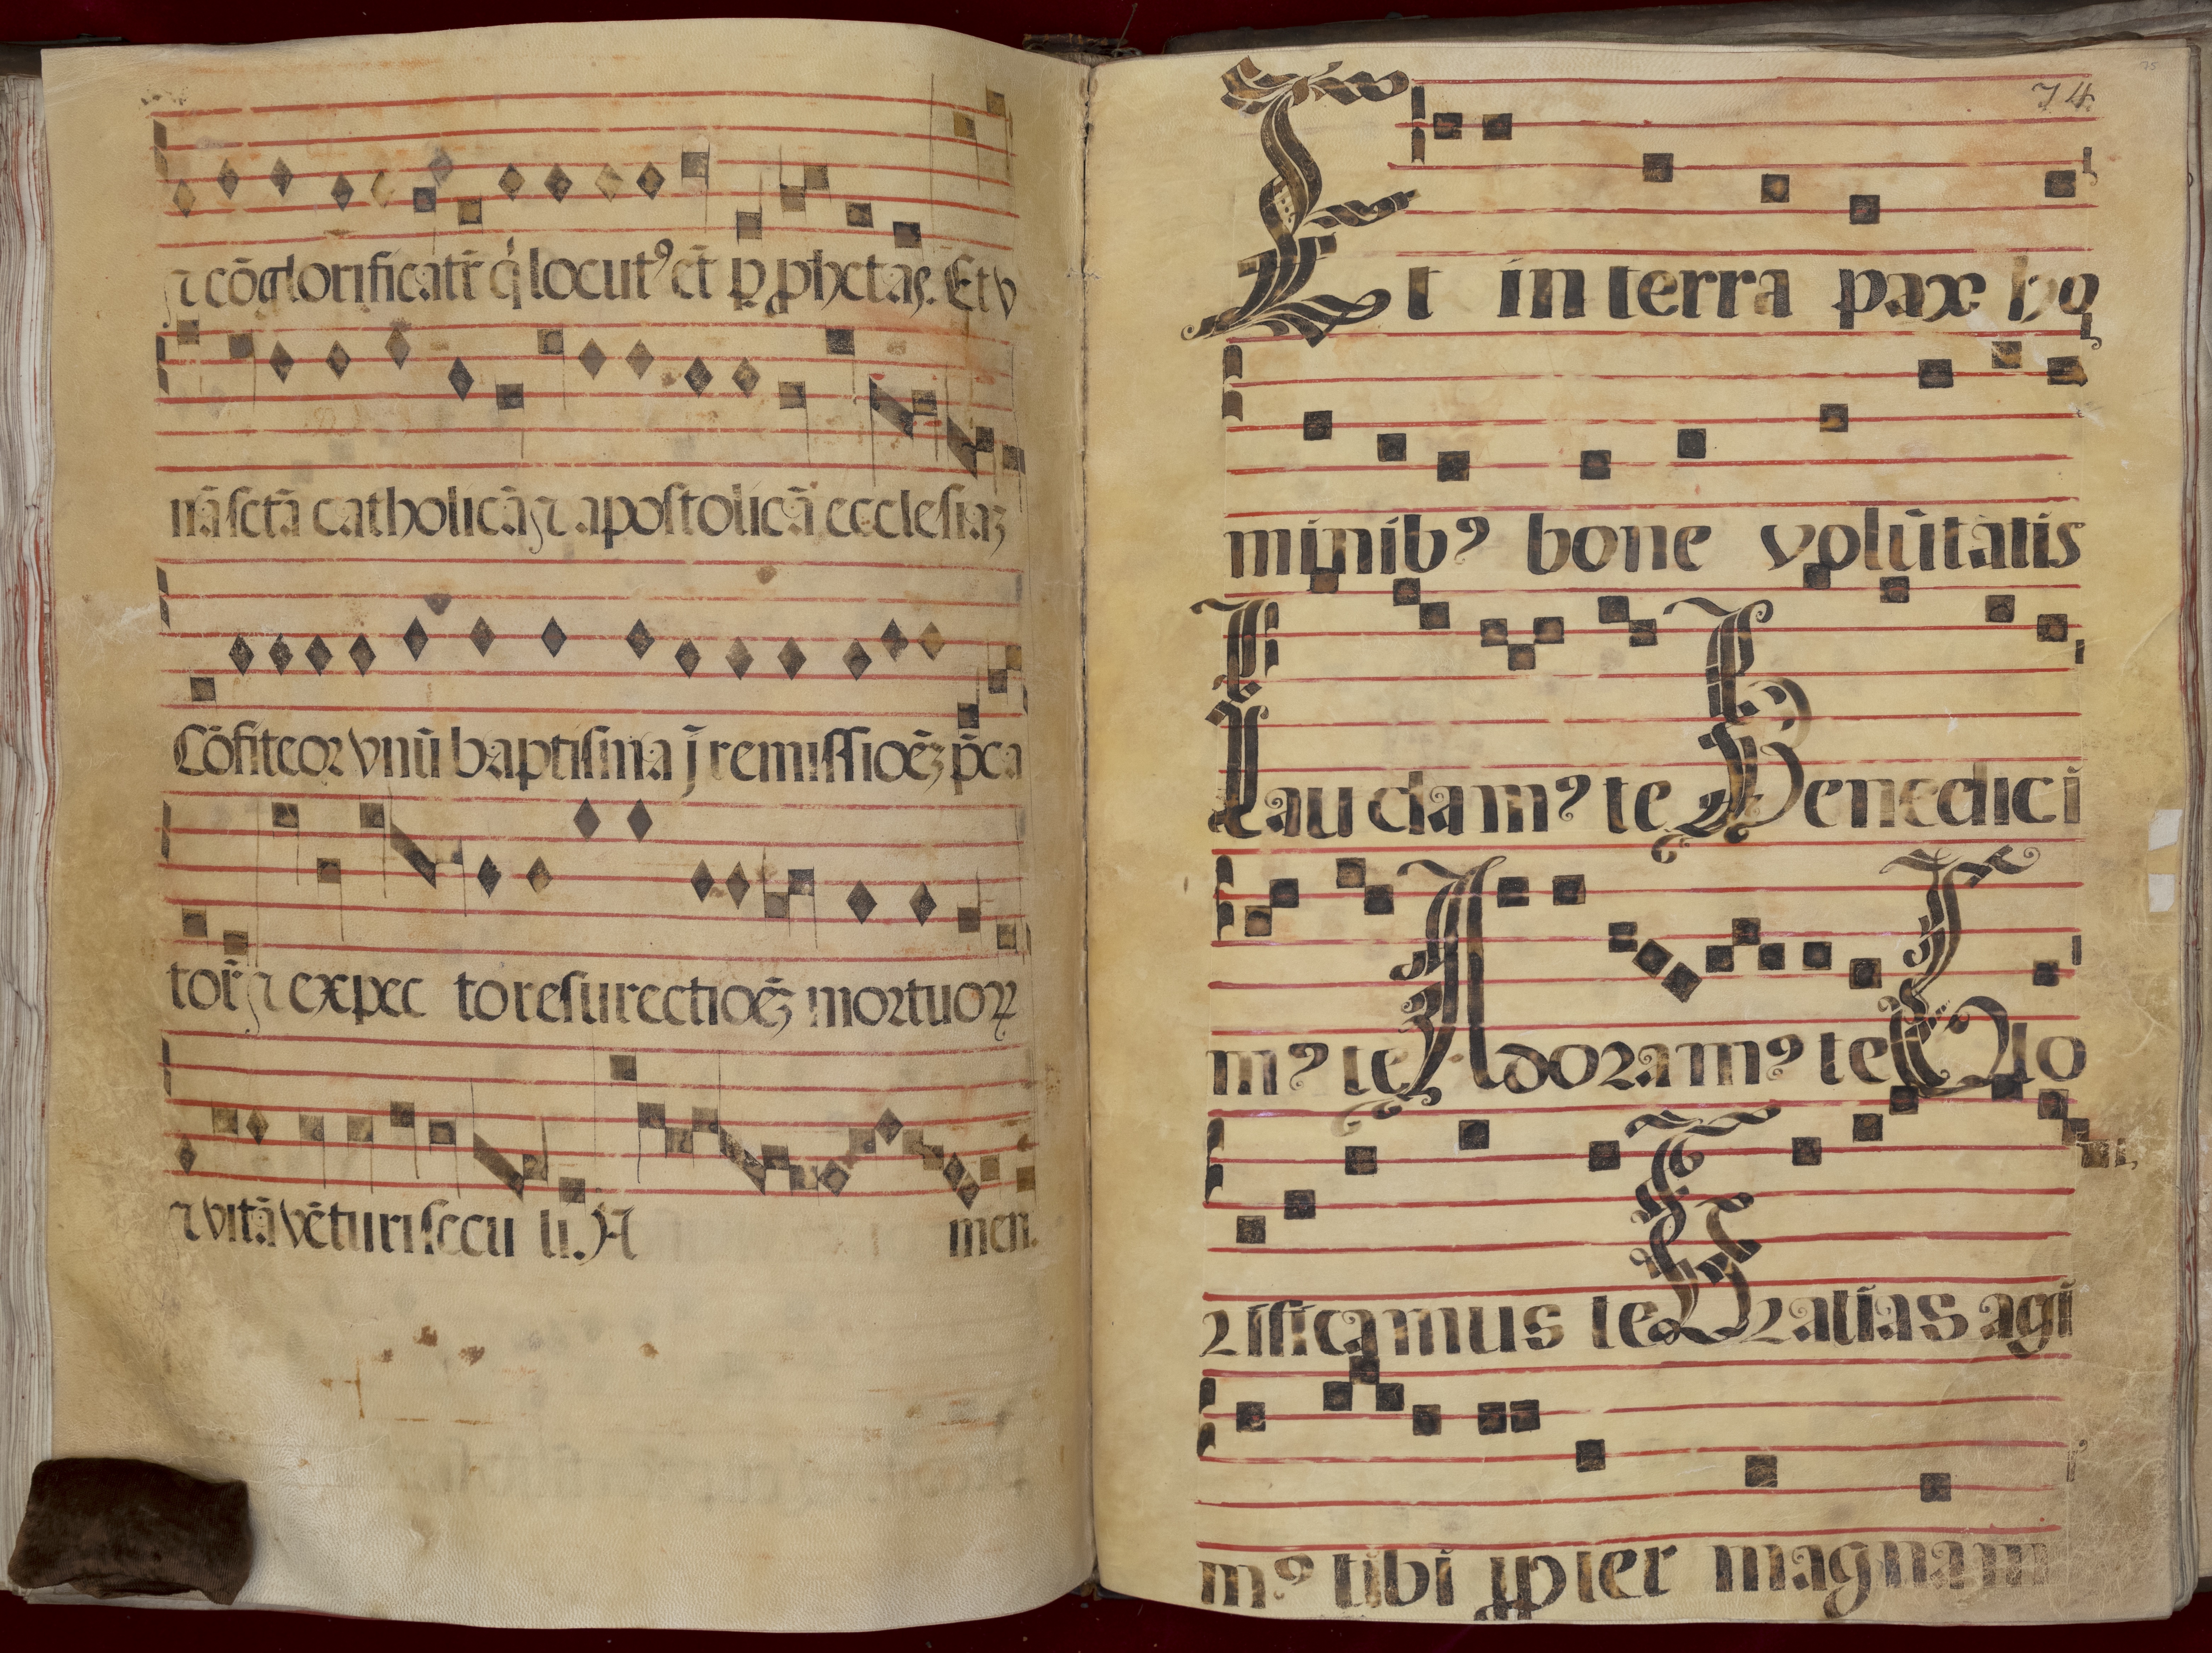 ⁊ cōglorificat᷑ q̇ locutꝰ ēt ꝑ ꝓphetas. Et v
nā sctā catholicā ⁊ apostolicā ecclesiaꝫ
Cōfiteor vnū baptisma ī remissioēꝫ p̄ca
tor̄ ⁊ expec to resurectioēꝫ mortuoꝝ
⁊ vitā vēturi secu li. A men.
74
75
Et in terra pax ho
minibꝰ bone volūtatis
Laudamꝰ te Benedici
mꝰ te Adoramꝰ te Glo
rificamus te Gratias agi
mꝰ tibi ꝓpter magnam